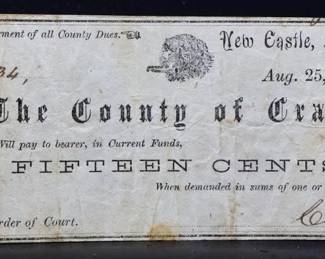 ment of all County Dues.
New Castle,
34,
Aug. 25,
The County of Cra
Will pay to bearer, in Current Funds,
FIFTEEN CENTS
When demanded in sums of one or
rder of Court.